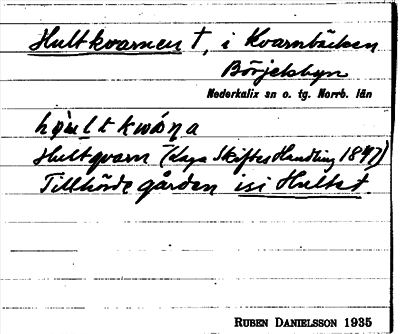 Hultkvarnen †, i Kvarnbäcken
Börjelsbyn
Nederkalix sn o. tg. Norrb. län
Hultqvarn (Laga Skiftes Handling 18)
Tillhörde gården isi Hultet.
RUBEN DANIELSSON 1935